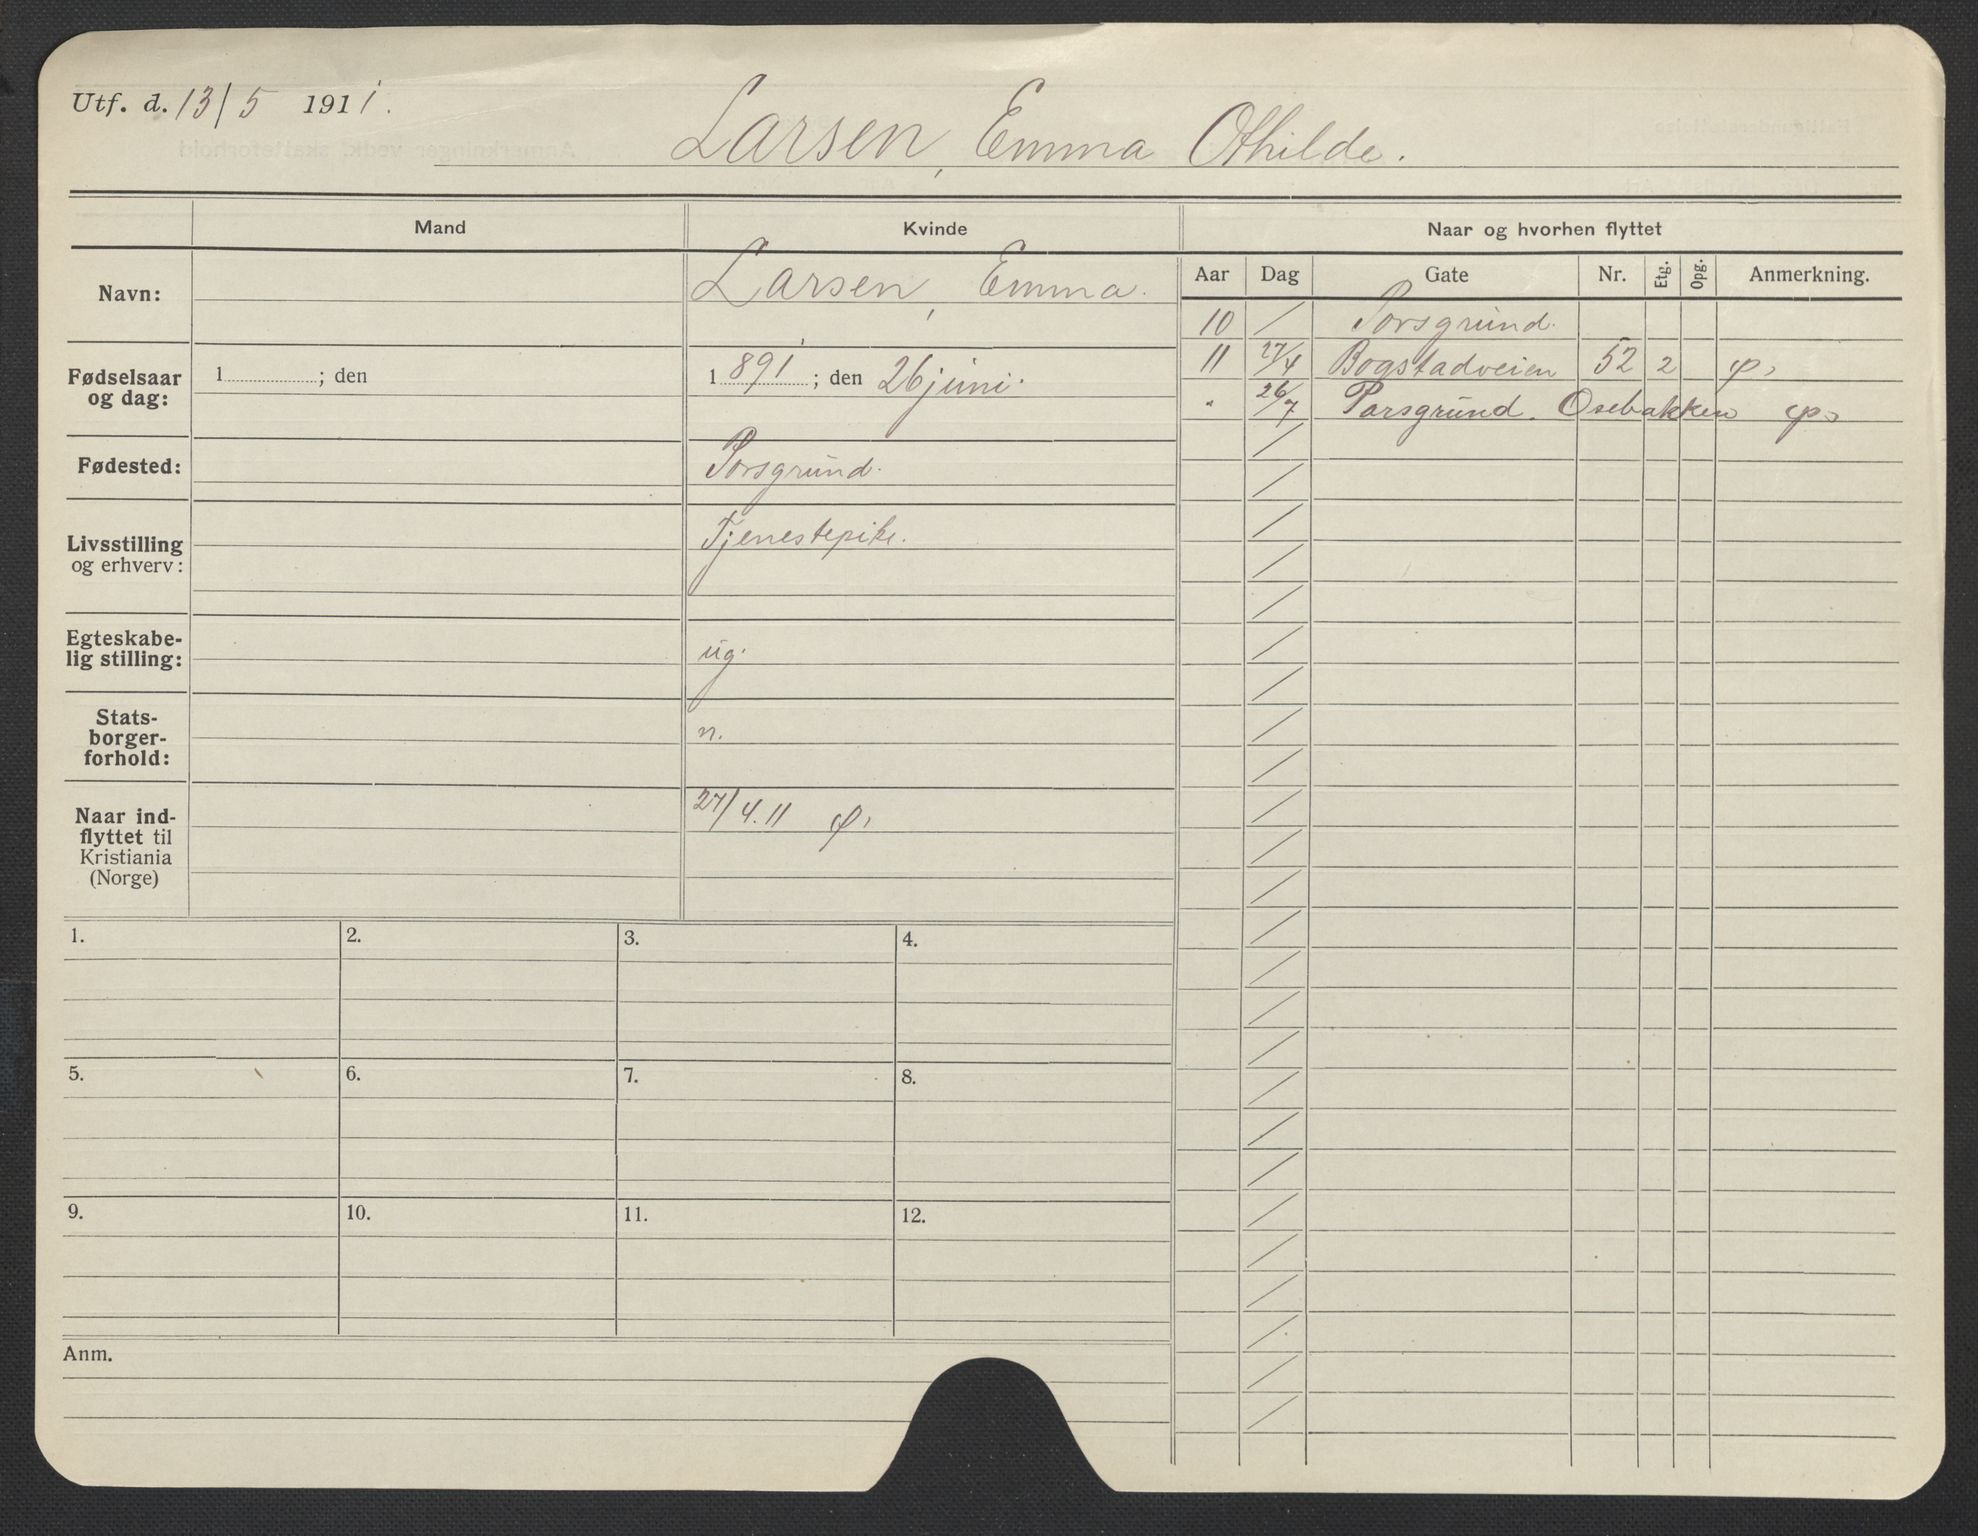 Utf. d. 13/5 1911.
Larsen, Emma Othilde.
Mand
Kvinde
Naar og hvorhen flyttet
Navn:
Larsen, Emma.
Aar Dag Gate Nr. Etg. Opg. Anmerkning.
10 / Porsgrund.
11 27/4 Bogstadveien 52 2
" 26/7 Porsgrund. Osebakken
Fødselsaar
og dag:
1 ; den
1891 ; den 26 juni.
Fødested:
Porsgrund.
Livsstilling
og erhverv:
Tjenestepike.
Egteskabe-
lig stilling:
ug.
Stats-
borger-
forhold:
n.
Naar ind-
flyttet til
Kristiania
(Norge)
27/4.11
1. 2. 3. 4.
5. 6. 7. 8.
9. 10. 11. 12.
Anm.